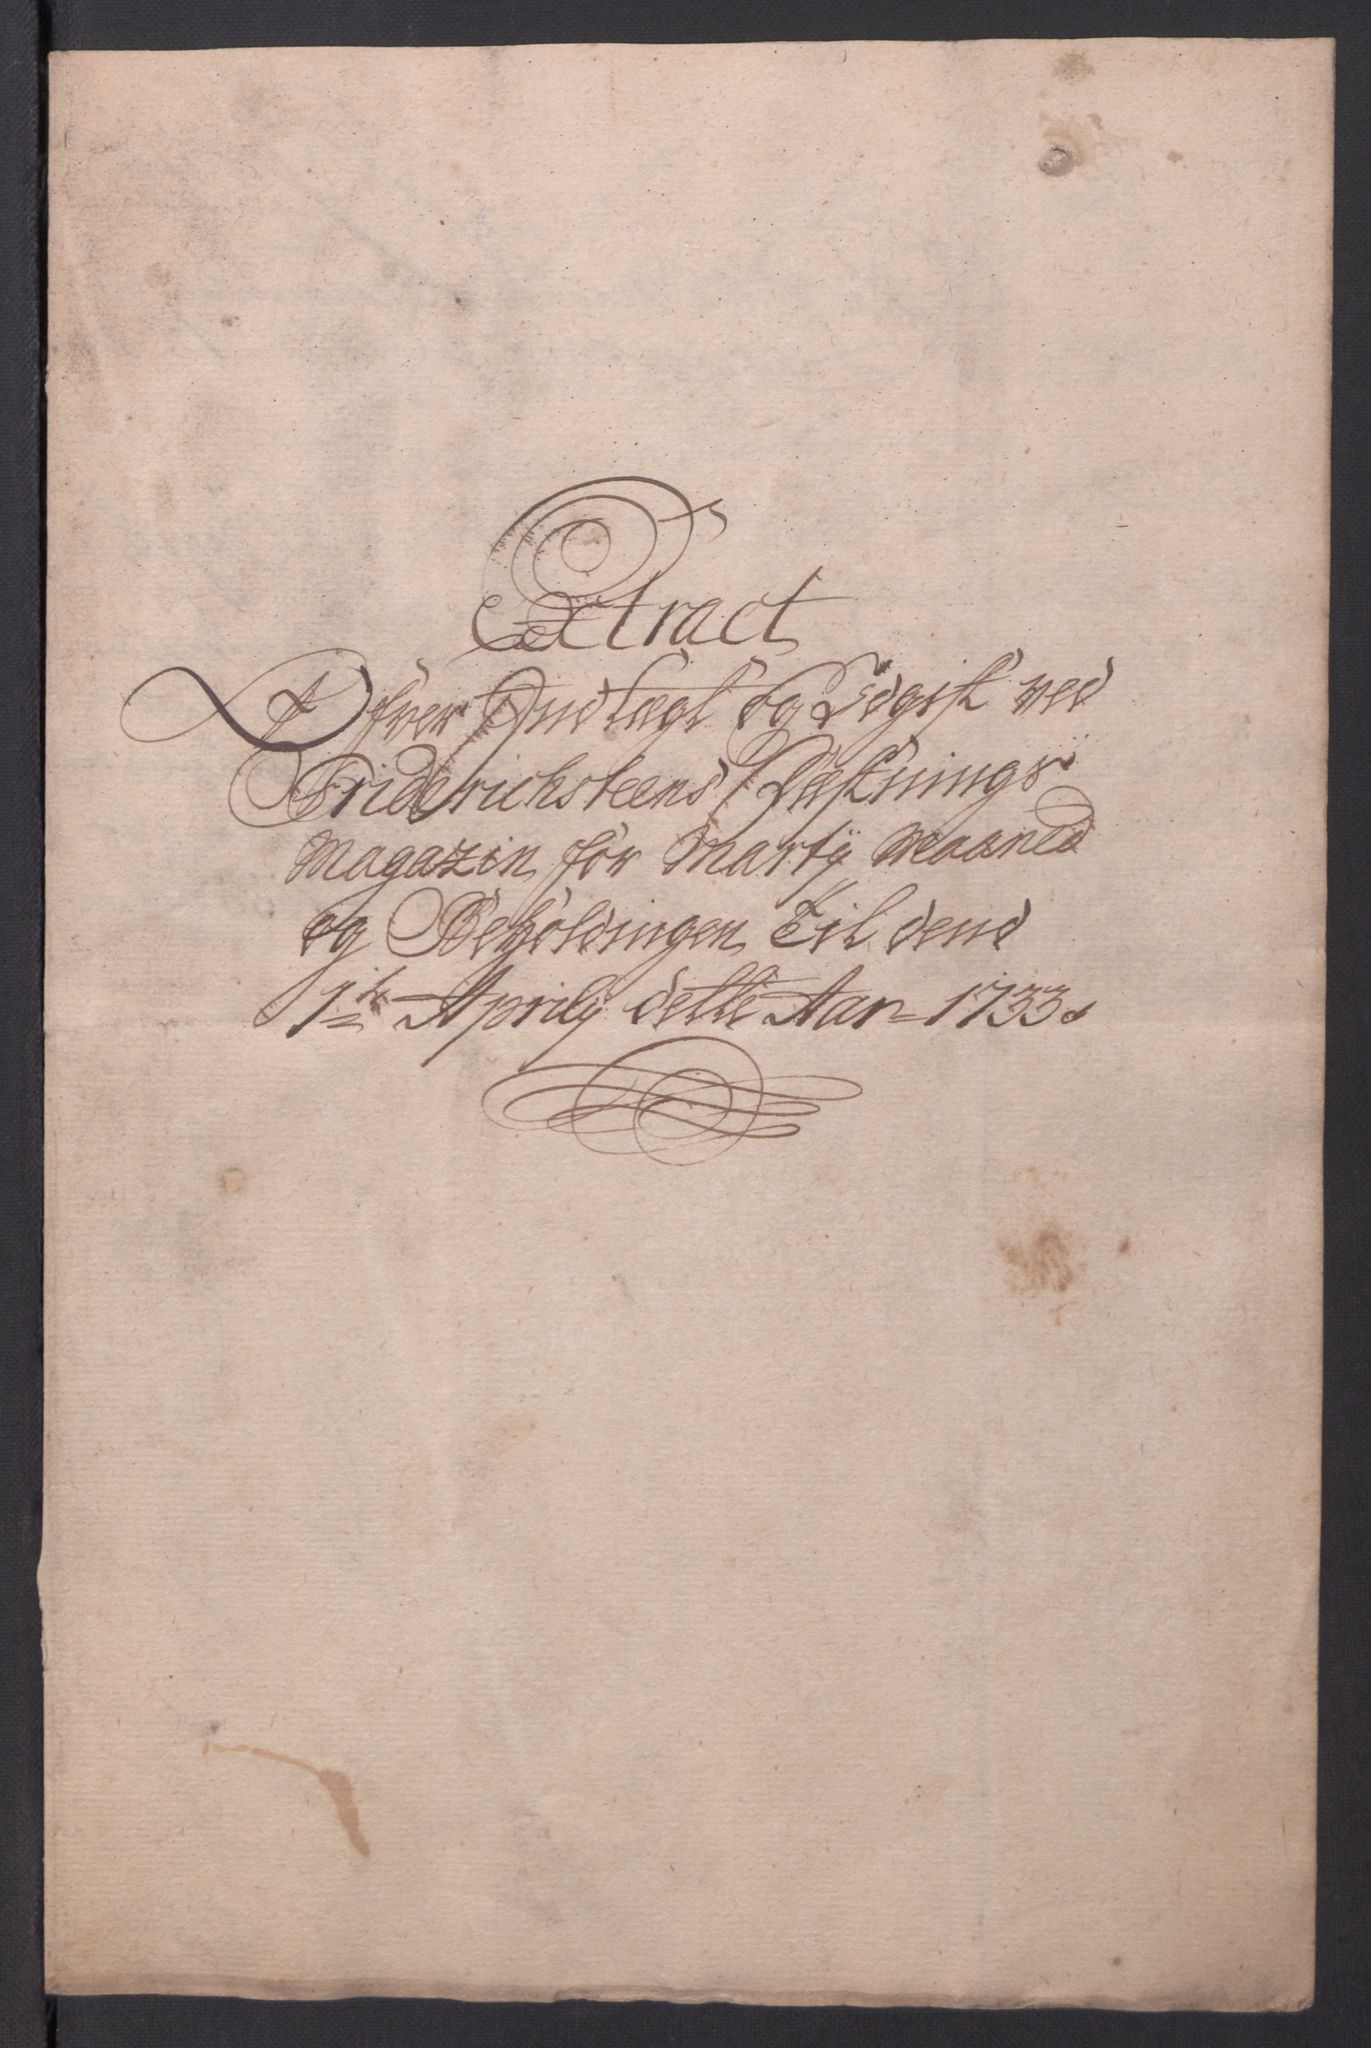 Extract
Ofver Indtægt og Udgift ved
Friderichsteens Fæstnings
Magazin for Martÿ Maaned
og Beholdingen Til dend
1te Aprilÿ dette Aar 1733